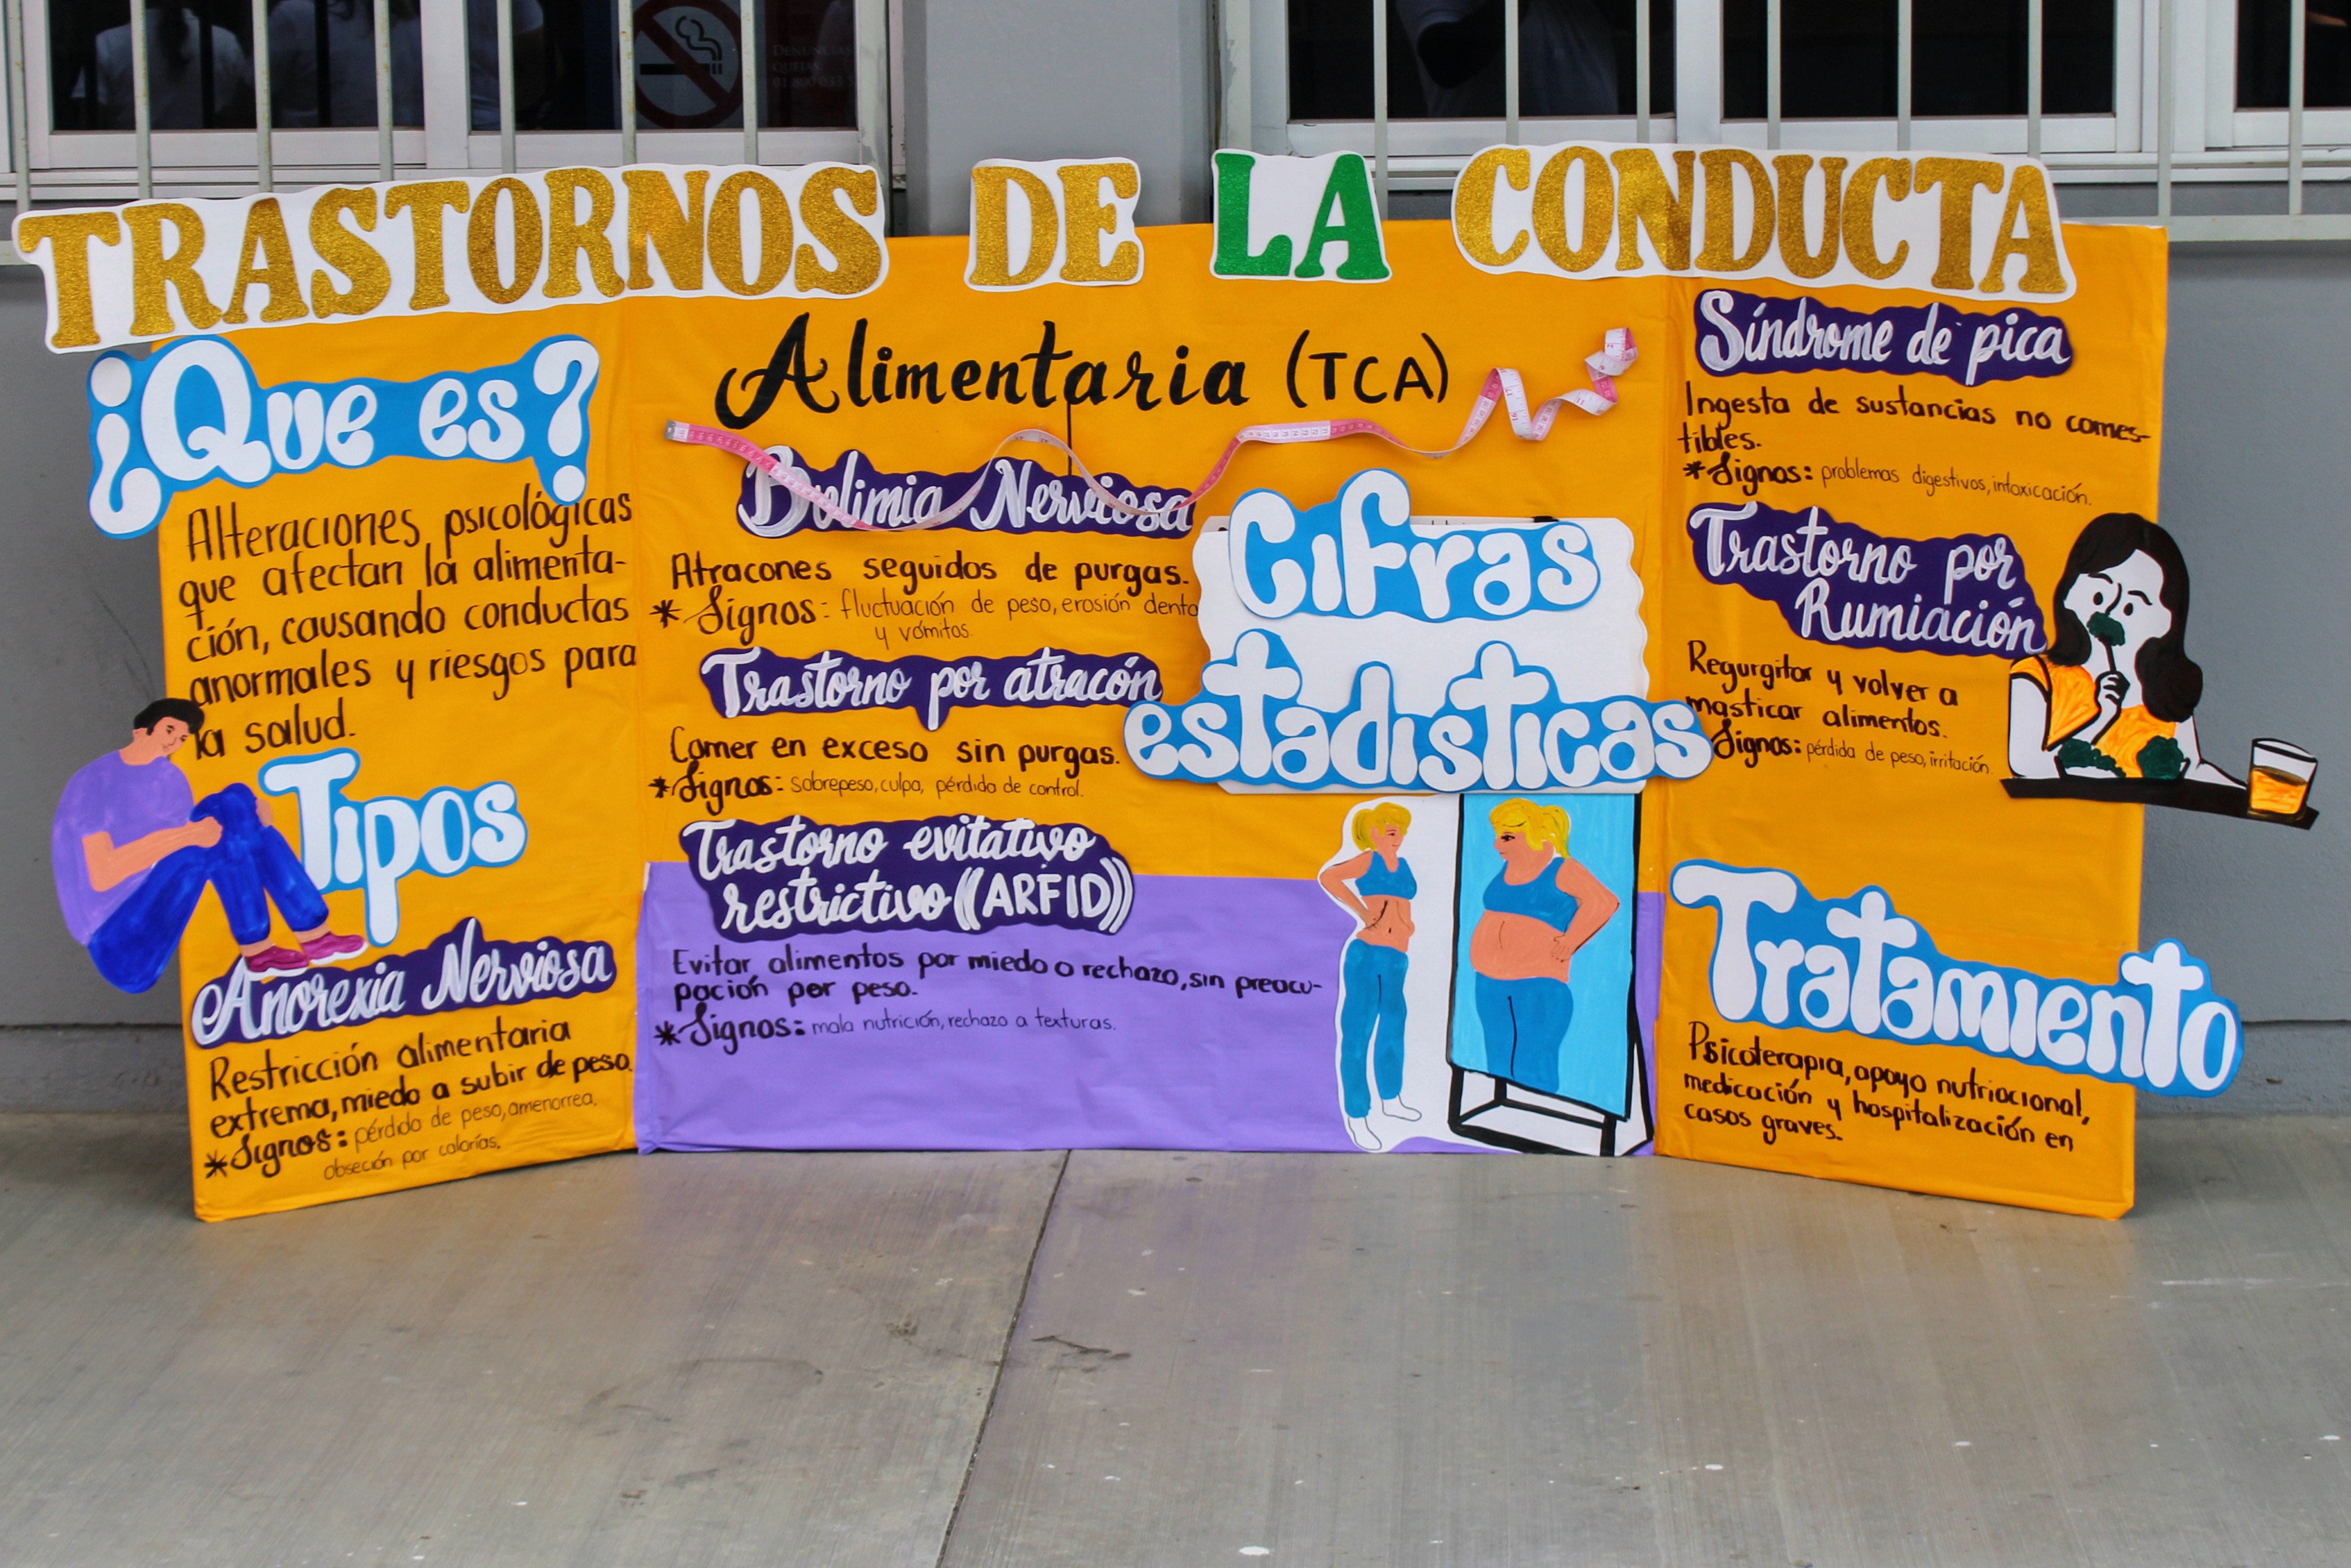 DENUNCIAS
QUEJAS:
TRASTORNOS DE LA CONDUCTA
Alimentaria (TCA)
¿Que es?
Alteraciones psicológicas
que afectan la alimenta-
ción, causando conductas
anormales y riesgos para
la salud.
Tipos
Anorexia Nerviosa
Restricción alimentaria
extrema, miedo a subir de peso.
*Signos: pérdida de peso, amenorrea,
obseción por calorías.
Bulimia Nerviosa
Atracones seguidos de purgas.
*Signos: fluctuación de peso, erosión denta
y vómitos.
Trastorno por atracón
Comer en exceso sin purgas.
*Signos: sobrepeso, culpa, pérdida de control.
Trastorno evitativo
restrictivo ((ARFID))
Evitar alimentos por miedo o rechazo, sin preocu-
pación por peso.
*Signos: mala nutrición, rechazo a texturas.
Cifras
estadísticas
Síndrome de pica
Ingesta de sustancias no comes-
tibles.
*Signos: problemas digestivos, intoxicación.
Trastorno por
Rumiación
Regurgitar y volver a
masticar alimentos.
Signos: pérdida de peso, irritación.
Tratamiento
Psicoterapia, apoyo nutriocional,
medicación y hospitalización en
casos graves.